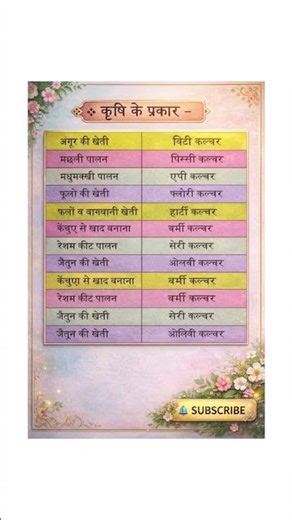 ❖ कृषि के प्रकार –
अंगूर की खेती विटी कल्चर
मछली पालन पिस्सी कल्चर
मधुमक्खी पालन एपी कल्चर
फूलों की खेती फ्लोरी कल्चर
फलों व वागवानी खेती हार्टी कल्चर
केंचुए से खाद बनाना वर्मी कल्चर
रेशम कीट पालन सेरी कल्चर
जैतुन की खेती ओलवी कल्चर
केंचुए से खाद बनाना वर्मी कल्चर
रेशम कीट पालन वर्मी कल्चर
जैतुन की खेती सेरी कल्चर
जैतुन की खेती ओलिवी कल्चर
SUBSCRIBE